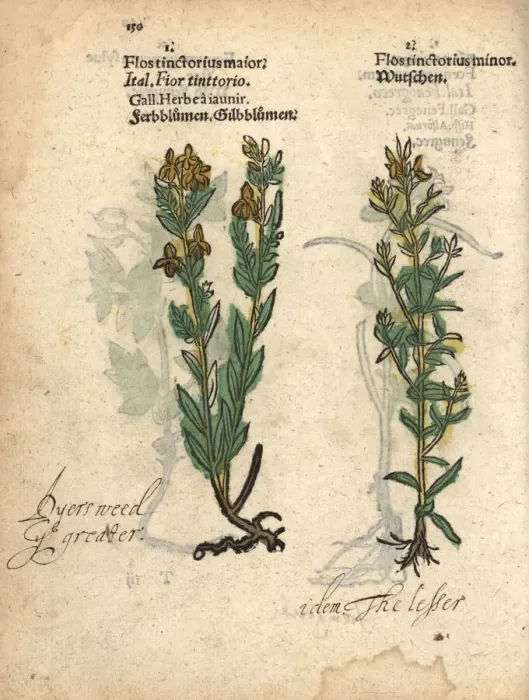 150
1.
Flos tinctorius maior.
Ital. Fior tinttorio.
Gall. Herbe à iaunir.
Ferbblůmen, Gilbblůmen.
2.
Flos tinctorius minor.
Wutschen.
Dyers weed
yᵉ greater.
idem. The lesser